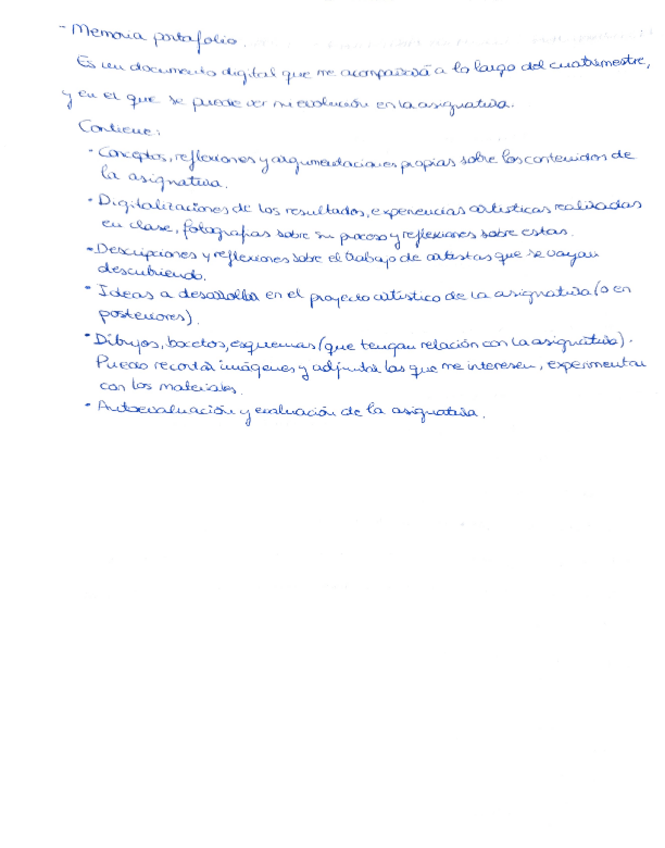 - Memoria portafolio.
Es un documento digital que me acompañará a lo largo del cuatrimestre,
y en el que se puede ver mi evolución en la asignatura.
Contiene:
· Conceptos, reflexiones y argumentaciones propias sobre los contenidos de
la asignatura.
· Digitalizaciones de los resultados, experiencias artísticas realizadas
en clase, fotografías sobre su proceso y reflexiones sobre estas.
· Descripciones y reflexiones sobre el trabajo de artistas que se vayan
descubriendo.
· Ideas a desarrollar en el proyecto artístico de la asignatura (o en
posteriores).
· Dibujos, bocetos, esquemas (que tengan relación con la asignatura).
Puedo recortar imágenes y adjuntar las que me interesen, experimentar
con los materiales.
· Autoevaluación y evaluación de la asignatura.